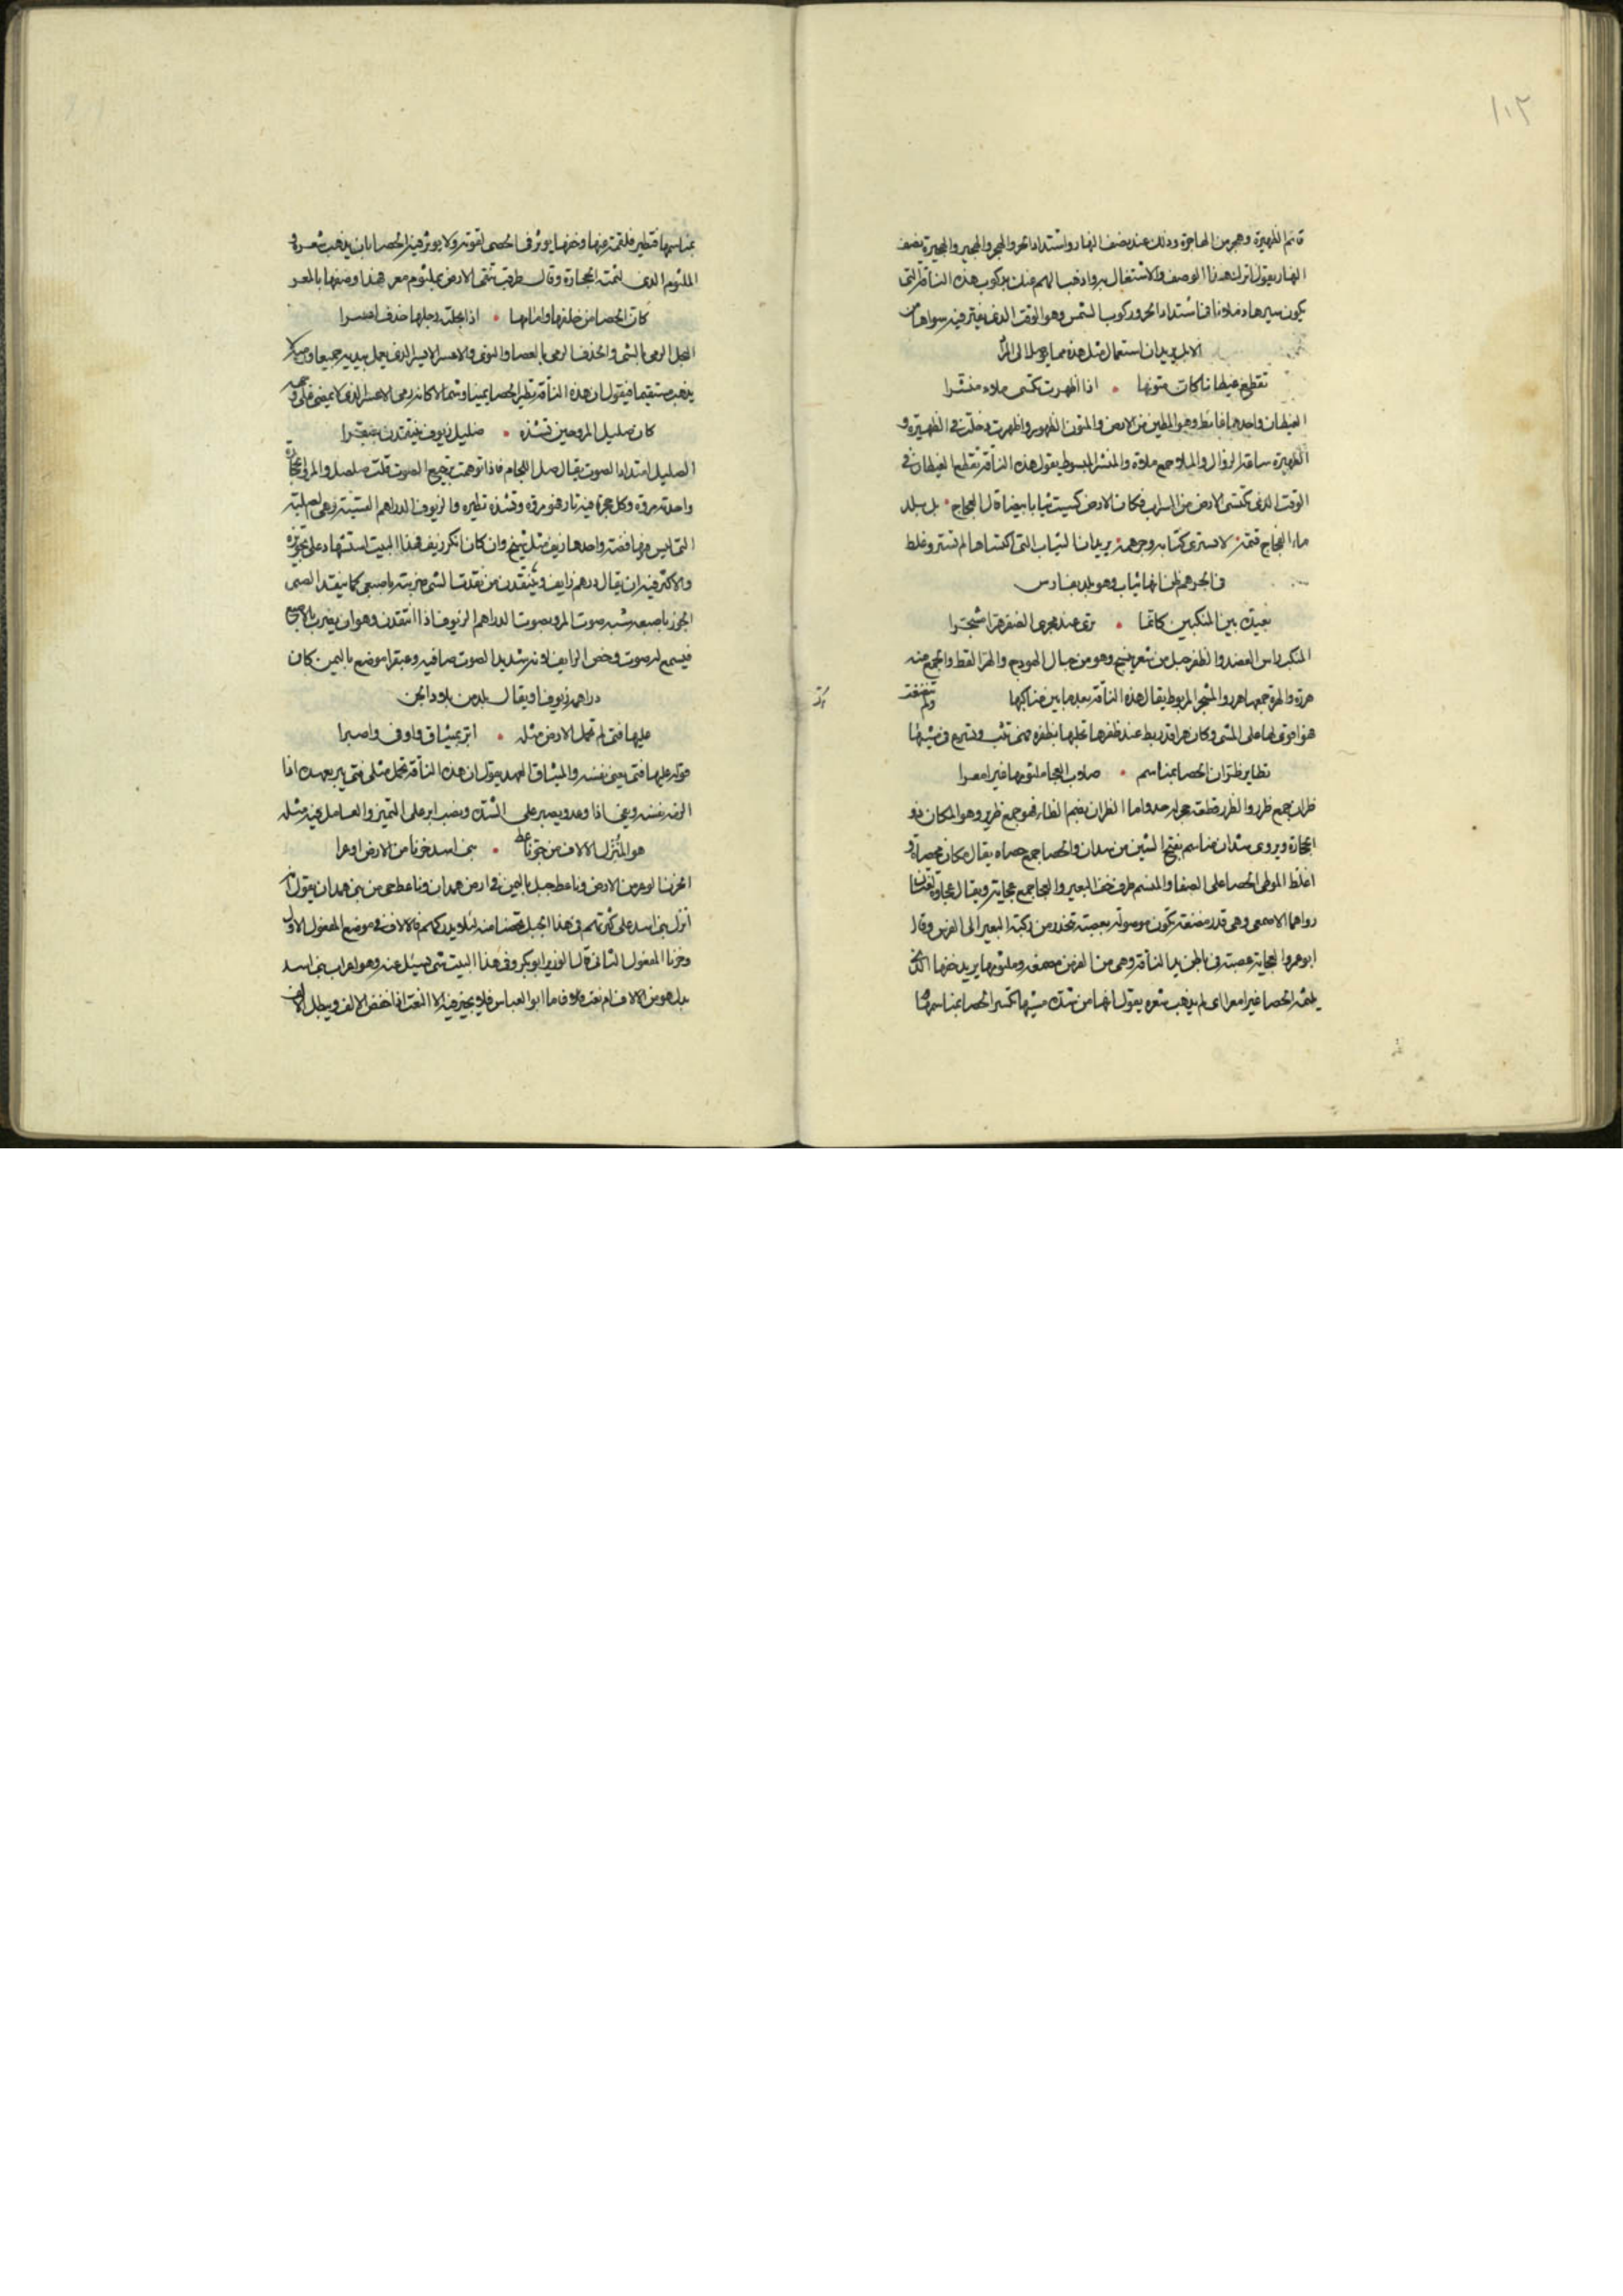 ١٠٢
قائم الظهيرة وهجر من الهاجرة وذلك عند نصف النهار واشتداد الحر والهجر والهجير والهجيرة نصف
النهار يقول اترك هذا الوصف والاشتغال به واذهب الهم عنك بركوب هذه الناقة التي
يكون سيرها دملانا في اشتداد الحر وركوب الشمس وهو الوقت الذي يفتر فيه سواها من
الابل يريد ان استعمال مثل هذه مما يوصلا الى المراد
تقطع غيطانا كان متونها • اذا اظهرت تكتسى ملاء منشرا
الغيطان واحدها غائط وهو المطمين من الارض والمتون الظهور واظهرت دخلت في الظهيرة و
الظهيرة ساعة الزوال والملاء جمع ملاءة والمنشر المبسوط يقول هذه الناقة تقطع الغيطان في
الوقت الذي تكتسى الارض من السراب فكان الارض كسيت ثيابا بيضا قال العجاج • بل بلد
ملء الفجاج قتمه • لا يشترى كتانه وجهرمه • يريد ان الثياب التي اكتساها لم تشتر وغلط
في الجهرم ظن انها ثياب وهو بلد بفارس
بعيدة بين المنكبين كانما • ترى عند مجرى الضفر هرا مشجرا
المنكب راس العضد والظفر حبل من شعر ينسج وهو من حبال الهودج والهر القط والجمع منه
هررة والهرة جمعها هرر والمشجر المربوط يقال هذه الناقة بعيد ما بين مناكبها
هو اقوى لها على المشى وكان هرا قد ربط عند ظفرها تخلبها بظفره فهى تثب وتسرع في مشيها
تطاير ظران الحصا بمناسم • صلاب العجا ملثومها غير امعرا
ظران جمع ظرر والظرر قطعة حجر له حد واما الظران بضم الظاء فهو جمع ظرير وهو المكان ذو
الحجارة ويروى شذان مناسم بفتح الشين من شذان والحصا جمع حصاه يقال مكان محصاة و
اغلظ الموطى الحصا على الصفا والمنسم طرف خف البعير والعجا جمع عجاية ويقال عجاوة لغتان
رواهما الاصمعى وهى قدر مضغة تكون موصولة بعصبة تنحدر من ركبة البعير الى الفرسن وقال
ابو عمرو العجاية عصبة في باطن يد الناقة وهى من الفرس مضغه وملثومها يريد خفها الذى
يلثمه الحصا غير امعرا اى لم يذهب شعره يقول انها من شدة مشيها تكسر الحصا بمناسمها
بمناسمها فتطير فلثمته منها وخفها يوثر في الحصى لقوته ولا يوثر فيه الحصا بان يذهب شعره و
الملثوم الذى لثمته الحجارة وقال طرفة تتقى الارض بملثوم معر هذا وصفها بالمعر
كان الحصا من خلفها وامامها • اذا نجلته رجلها خذف اعسرا
النجل الرمى بالشى والخذف الرمى بالعصا والنوى والاعسر الايسر الذى يعمل بيديه جميعا
يذهب مستقيما فيقول ان هذه الناقة تطير الحصا يمينا وشمالا كانه رمى الاعسر الذى لا يمضى على
كان صليل المرو حين تشذه • صليل زيوف ينتقدن بعبقرا
الصليل امتداد الصوت يقال صل اللجام فاذا توهمت ترجيع الصوت قلت صلصل والمرو حجارة
واحدته مروة وكل حجر فيه نار فهو مروة وتشذه تطيره والزيوف الدراهم
التى ليس فيها فضة واحدها زيف مثل شيخ وان كان انكر زيف فهذا البيت استشهاد على تجويزه
والاكثر فيه ان يقال درهم زايف وينتقدن من نقدت الشى ضربته باصبعى كما ينقد الصبى
الجوز باصبعه شبه صوت المرو بصوت الدراهم الزيوف اذا انتقدن وهو ان يضرب بالاصبع
فيسمع له صوت وخص الزايف لانه شديد الصوت صافيه وعبقرا موضع باليمن كان
دراهمه زيوفا ويقال بلد من بلاد الجن
عليها فتى لم تحمل الارض مثله • ابر بميثاق واوفى واصبرا
قوله عليها فتى يعنى نفسه والميثاق العهد يقول ان هذه الناقة تحمل مثلى فتى يبر بعهده اذا
الزمه نفسه ويفى اذا وعد ويصبر على الشدة ونصب ابر على التميز والعامل فيه مثله
هو المنزل الالاف من جو ناعط • بنى اسد حزنا من الارض اوعرا
الحزن الوعر من الارض وناعط جبل باليمن في ارض همدان وناعط حى من بنى همدان يقول
انزل بنى اسد على كثرتهم في هذا الجبل تحصنا منه لئلا يدركهم فالالاف في موضع المفعول الاول
وحزنا المفعول الثانى قال الوزير ابو بكر وفى هذا البيت شى يسئل عنه وهو اعراب بنى اسد
بدل هو من الالاف ام نعت فاما ابو العباس فلا يجيز فيه الا النعت اذا خفض الالف ويجعل الالف